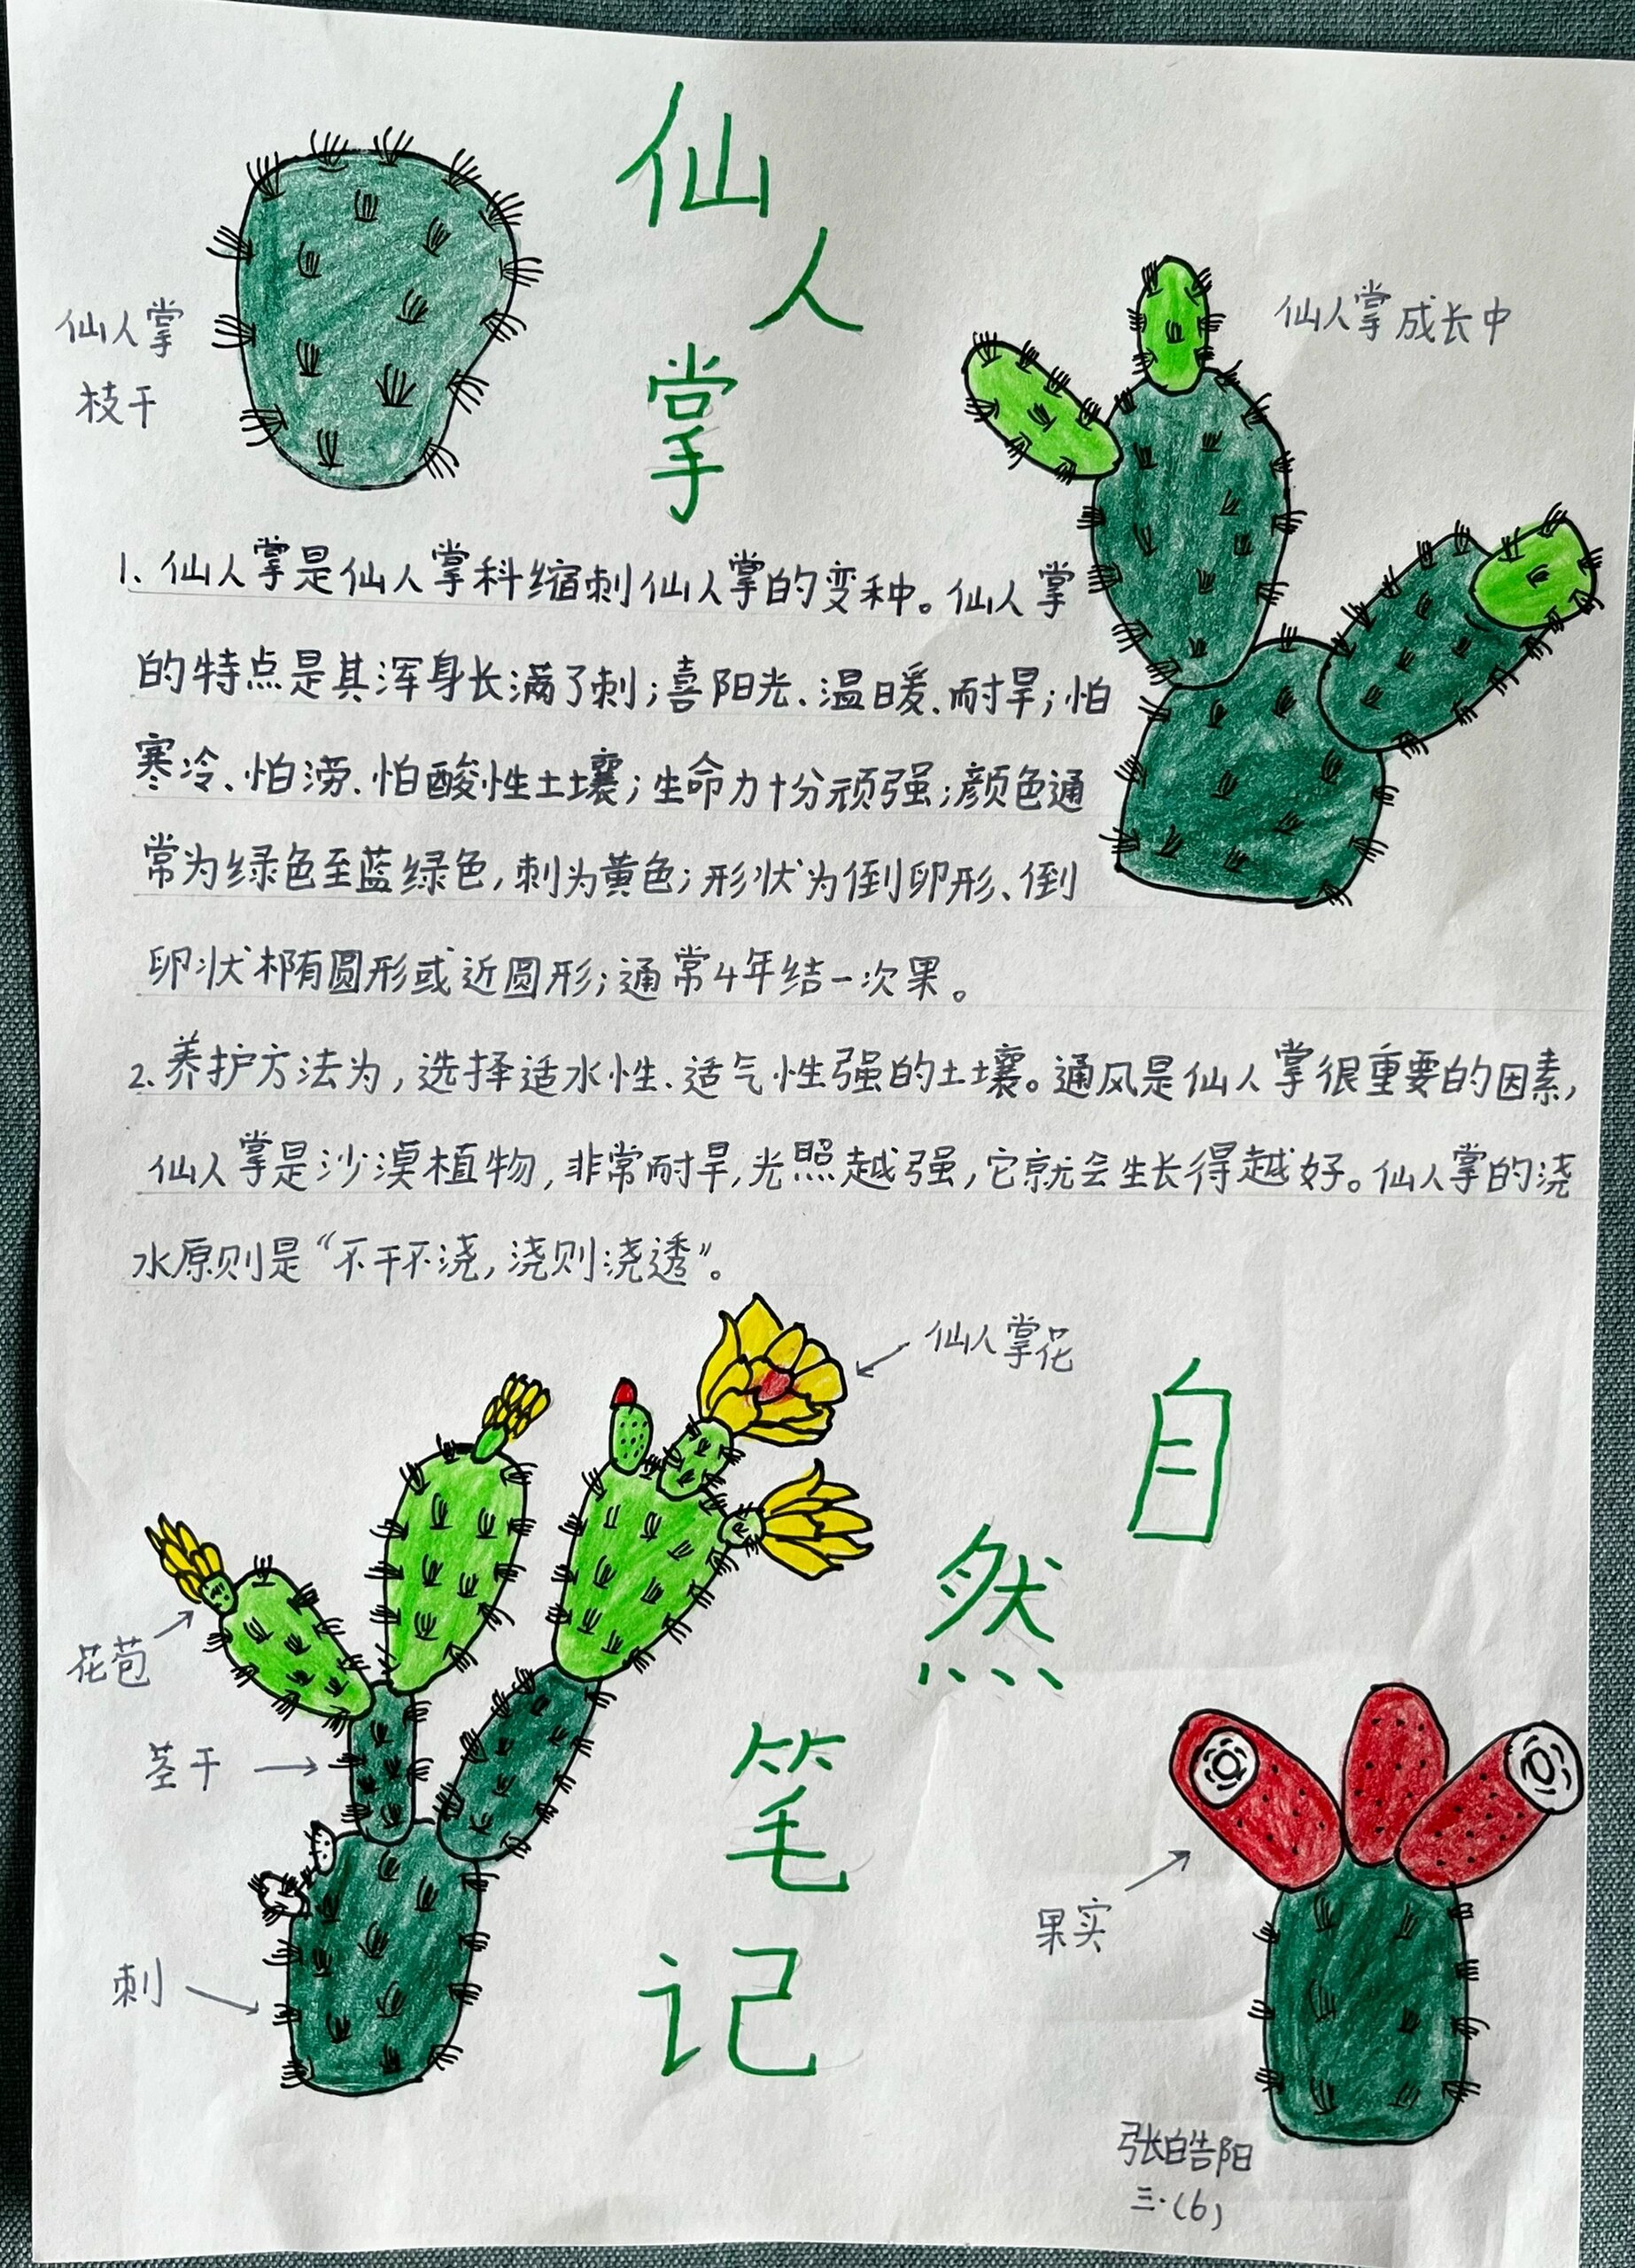 仙人掌
仙人掌
枝干
仙人掌成长中
1.仙人掌是仙人掌科缩刺仙人掌的变种。仙人掌
的特点是其浑身长满了刺；喜阳光、温暖、耐旱；怕
寒冷、怕涝、怕酸性土壤；生命力十分顽强；颜色通
常为绿色至蓝绿色，刺为黄色；形状为倒卵形、倒
卵状椭圆形或近圆形；通常4年结一次果。
2.养护方法为，选择适水性、适气性强的土壤。通风是仙人掌很重要的因素，
仙人掌是沙漠植物，非常耐旱，光照越强，它就会生长得越好。仙人掌的浇
水原则是“不干不浇，浇则浇透”。
仙人掌花
花苞
茎干
刺
自然笔记
果实
张皓阳
三·(6)